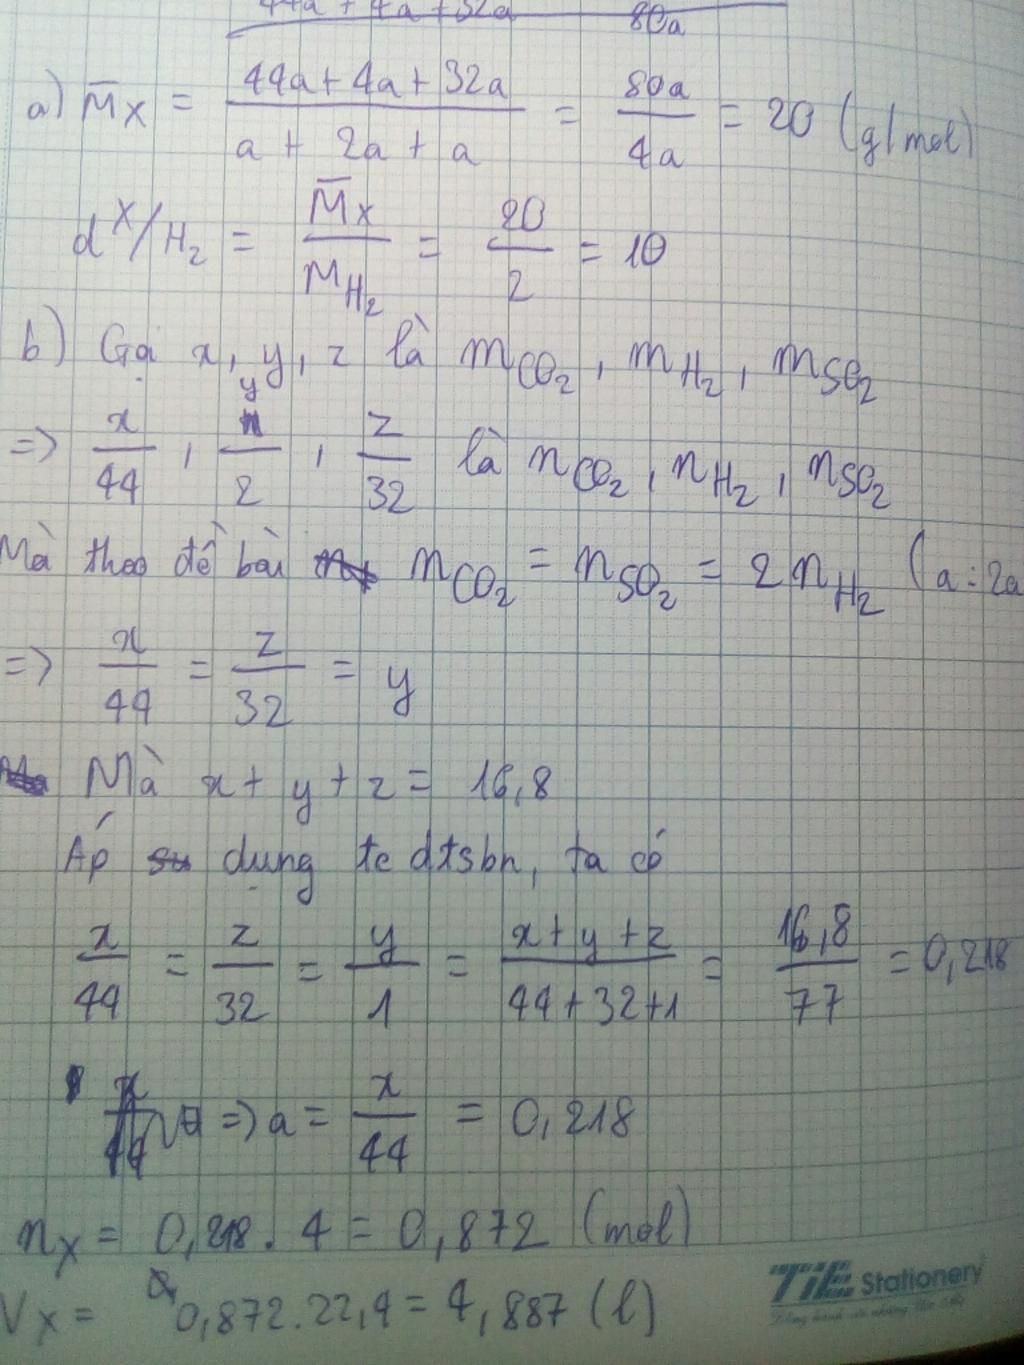 44a + 4a + 32a 80a
a) M̄x = (44a + 4a + 32a)/(a + 2a + a) = 80a/4a = 20 (g/mol)
d X/H₂ = M̄x/M_H₂ = 20/2 = 10
b) Gọi x, y, z là m_CO₂, m_H₂, m_SO₂
=> x/44, y/2, z/32 là n_CO₂, n_H₂, n_SO₂
Mà theo đề bài n_CO₂ = n_SO₂ = 2n_H₂ (a : 2a
=> x/44 = z/32 = y
Mà x + y + z = 16,8
Áp dụng tc dtsbn, ta có
x/44 = z/32 = y/1 = (x + y + z)/(44 + 32 + 1) = 16,8/77 = 0,218
=> a = x/44 = 0,218
nx = 0,218 . 4 = 0,872 (mol)
Vx = 0,872 . 22,4 = 4,887 (l)
TiE Stationery